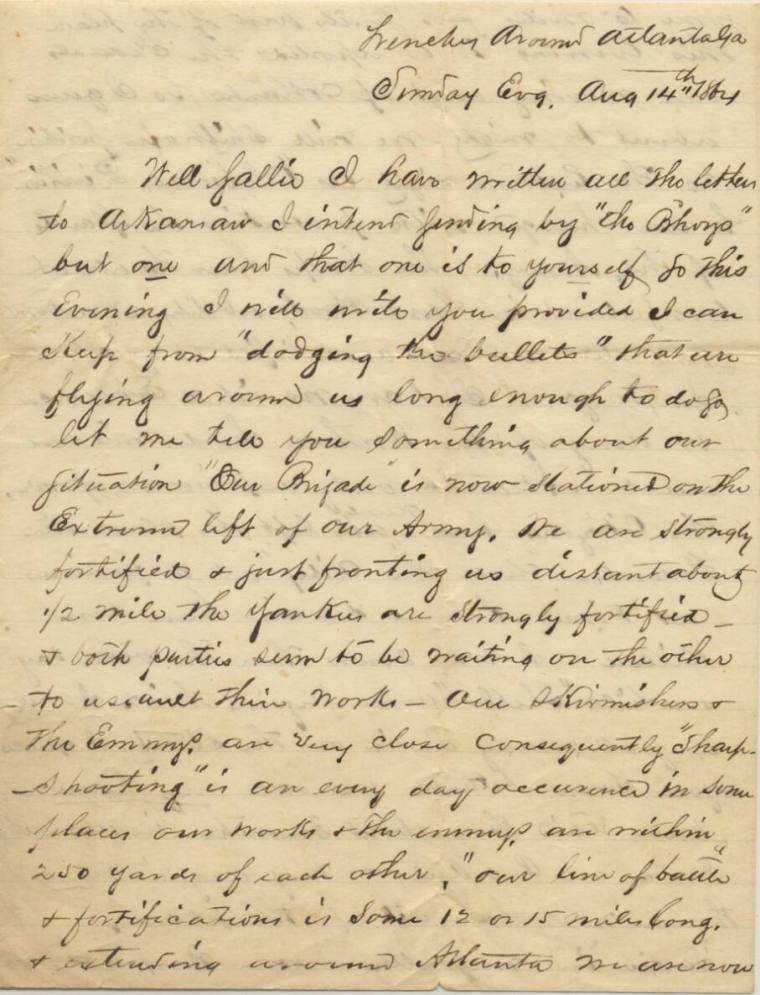 Trenches Around Atlanta Ga
Sunday Evg. Aug 14th 1864
Well Sallie I have written all the letters
to Arkansaw I intend sending by "the Bhoys"
but one and that one is to yourself So this
Evening I will write you provided I can
Keep from "dodging the bullets" that are
flying around us long enough to do so,
let me tell you something about our
situation "Our Brigade" is now stationed on the
Extreme left of our Army. We are strongly
fortified & just fronting us distant about
1/2 mile the Yankees are strongly fortified –
& both parties seem to be waiting on the other
to assault their works – Our Skirmishers &
the Enemys are very close Consequently "Sharp-
shooting" is an every day occurence in some
places our works & the enemys are within
250 yards of each other, "our line of battle"
& fortifications is some 12 or 15 miles long.
& extending around Atlanta we are now